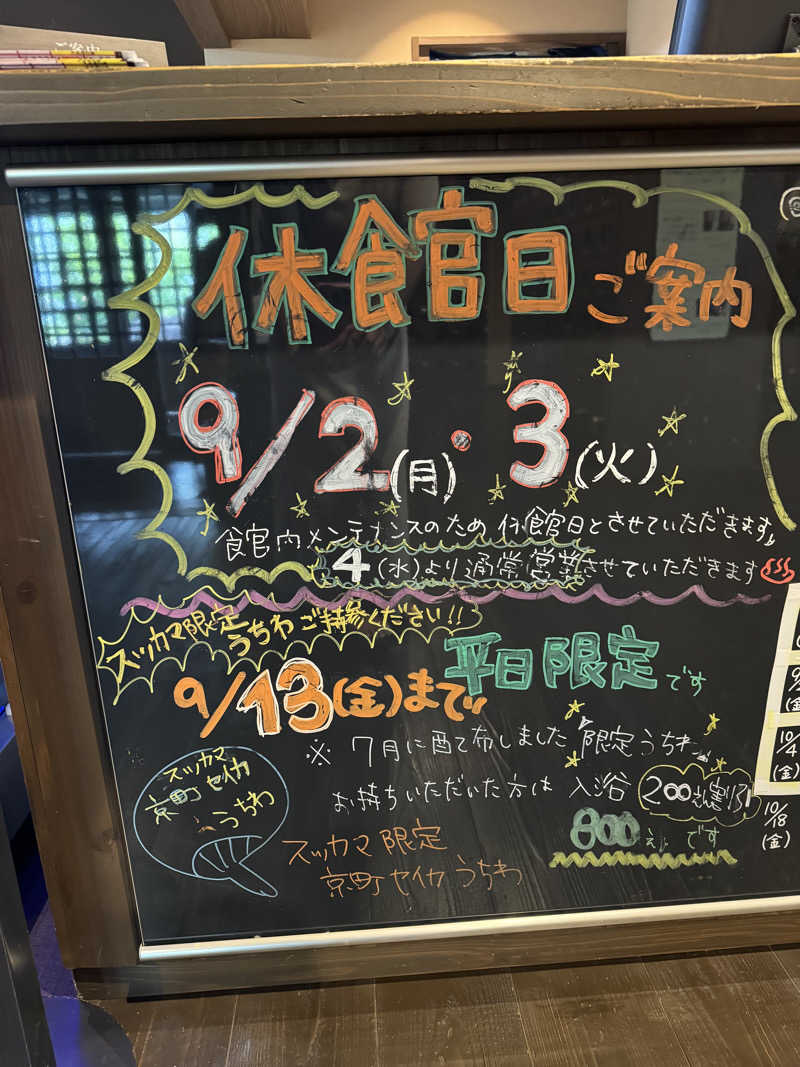 ご案内
休館日ご案内
9/2(月)・3(火)
館内メンテナンスのため休館日とさせていただきます
4(水)より通常営業させていただきます
スッカマ限定
うちわご持参ください!!
9/13(金)まで 平日限定です
※7月に配布しました限定うちわ
お持ちいただいた方は 入浴200えん割引
800えんです
スッカマ
京町セイカ
うちわ
スッカマ限定
京町セイカうちわ
10/4
(金)
10/18
(金)